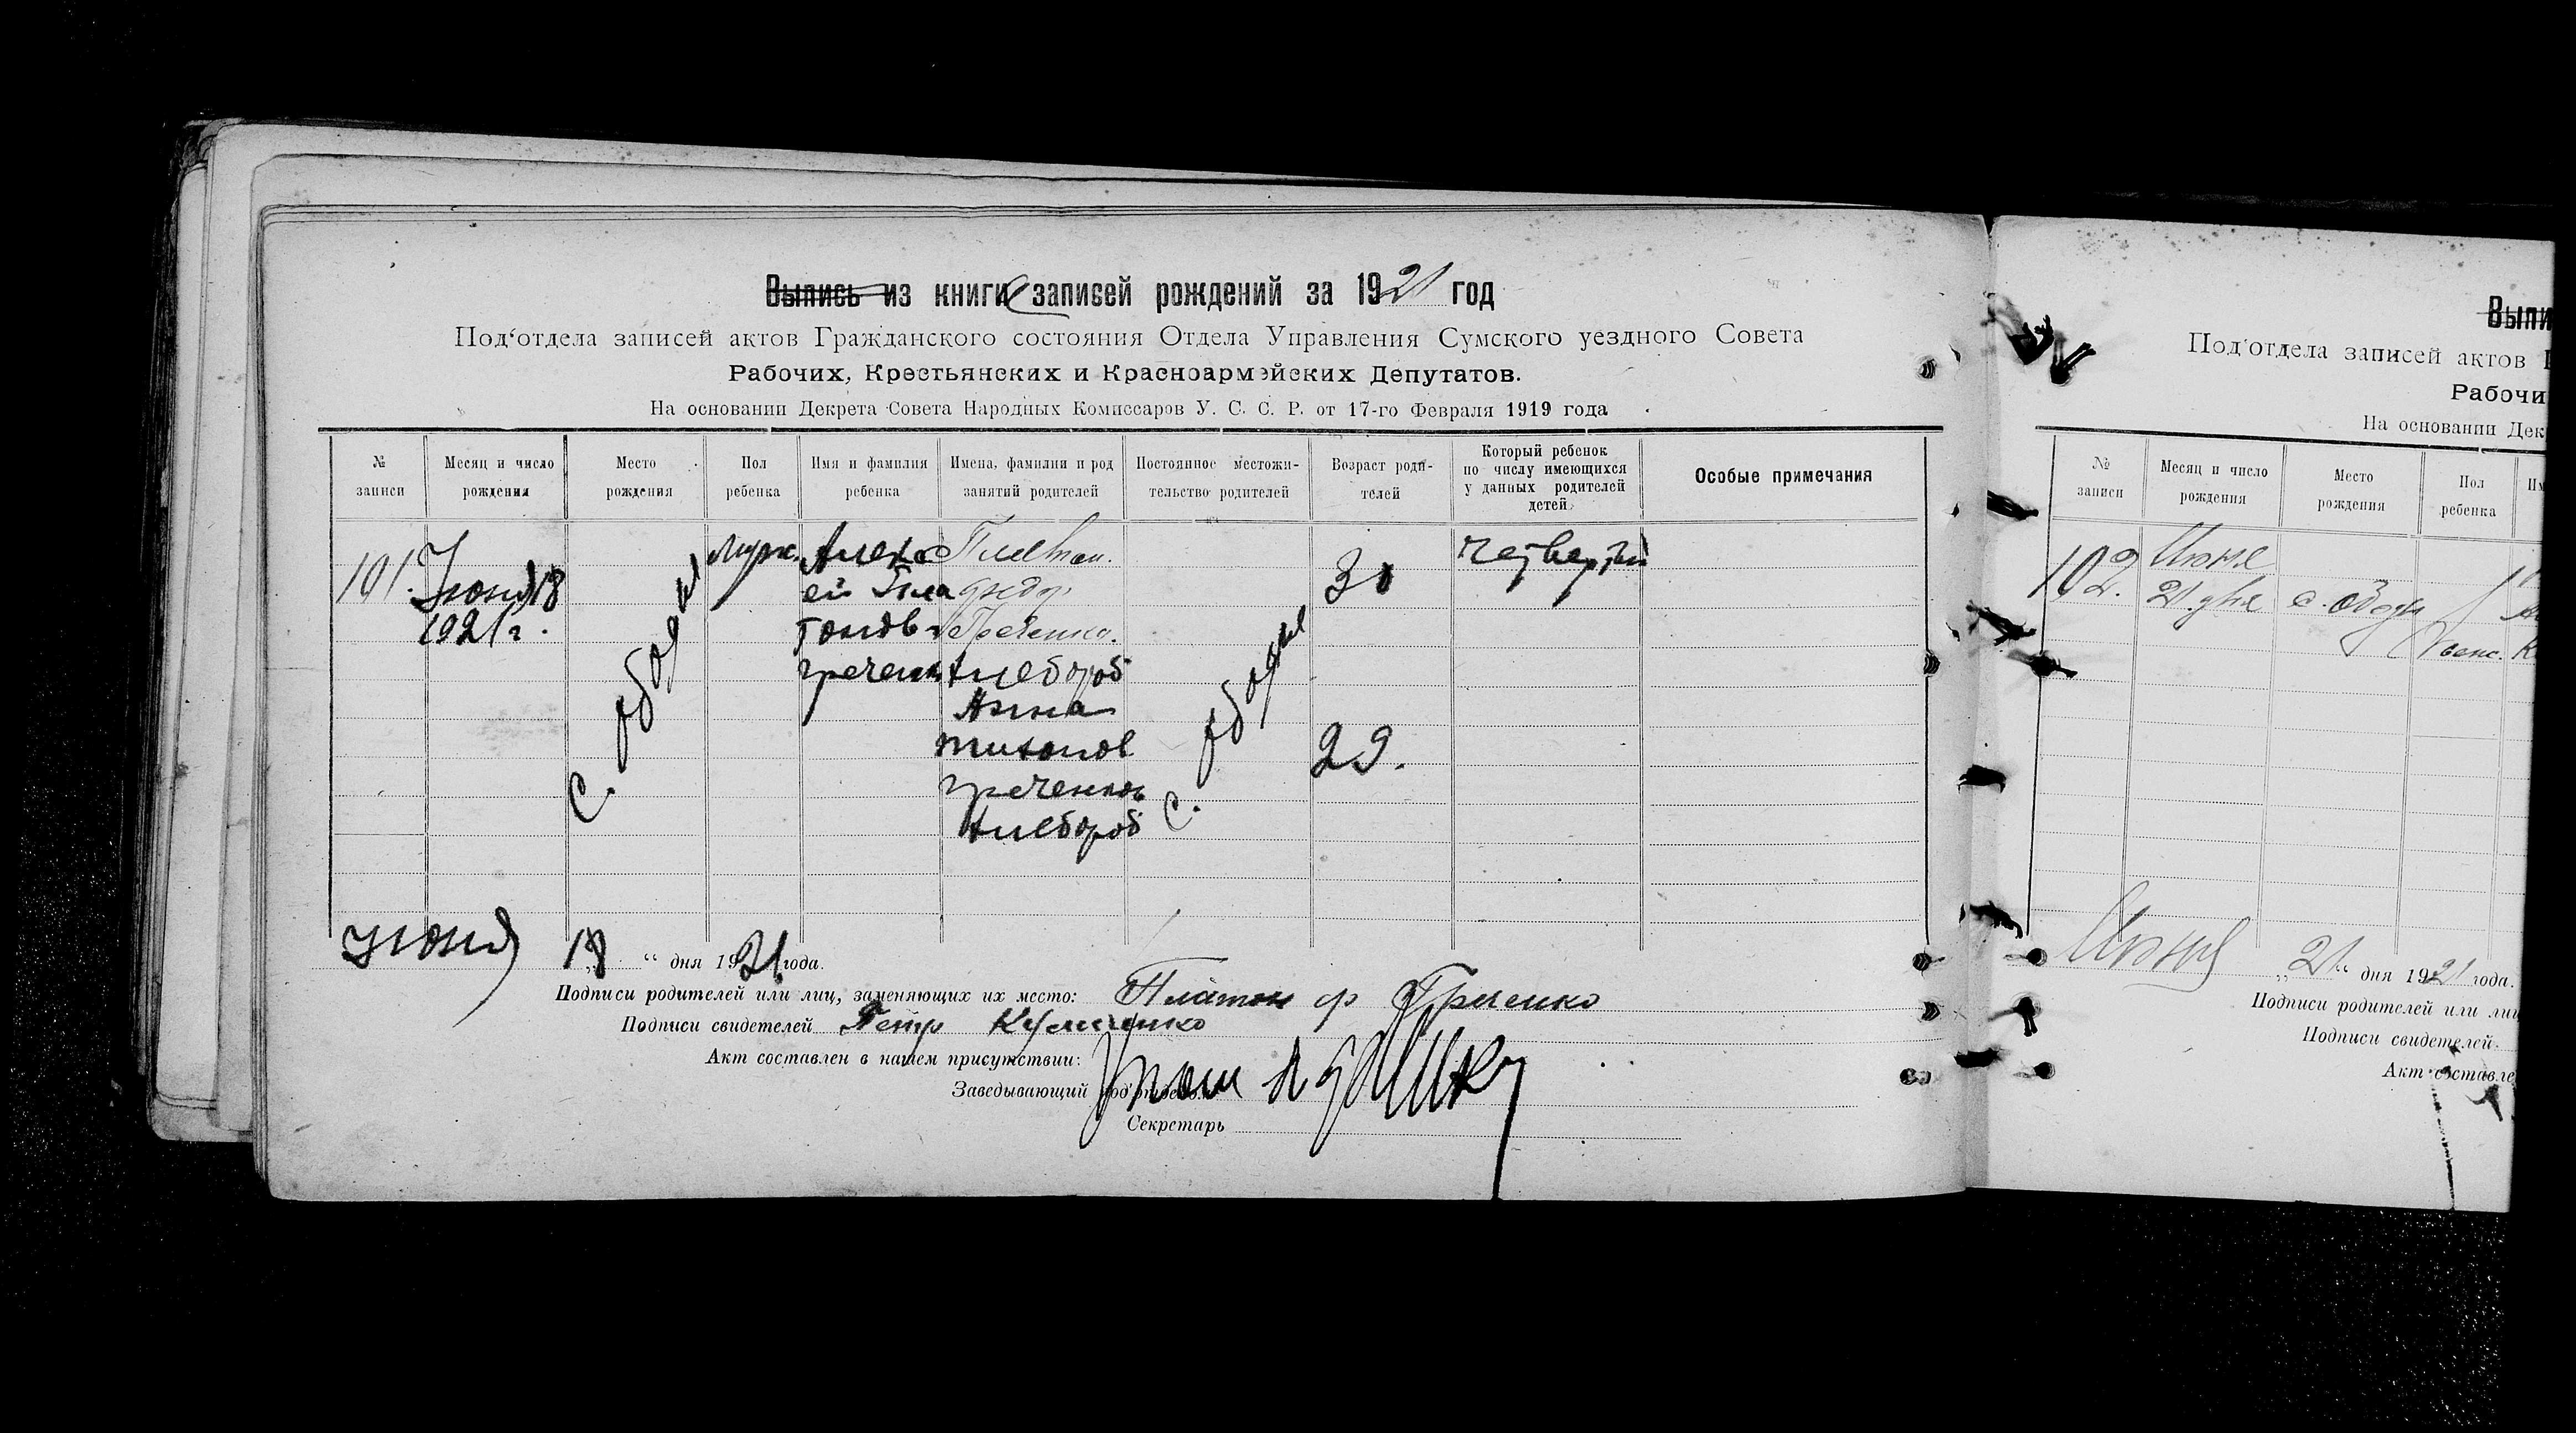 Выпись из книги записей рождений за 1921 год
Под‘отдела записей актов Гражданского состояния Отдела Управления Сумского уездного Совета
Рабочих, Крестьянских и Красноармейских Депутатов.
На основании Декрета Совета Народных Комиссаров У. С. С. Р. от 17-го Февраля 1919 года
№ записи
Месяц и число рождения
Место рождения
Пол ребенка
Имя и фамилия ребенка
Имена, фамилии и род занятий родителей
Постоянное местожительство родителей
Возраст родителей
Который ребенок по числу имеющихся у данных родителей детей
Особые примечания
101.
Июня 18
1921 г.
с. ободы
Муж.
Алексей Платонов
греченк
Платон
Греченко.
хлебороб
Анна
тихонов
греченков
хлебороб
с. ободы
30
29.
четвертый
июня 18 “ дня 1921 года.
Подписи родителей или лиц, заменяющих их место: Платон ф Греченко
Подписи свидетелей Петр
Акт составлен в нашем присутствии:
Заведывающий под‘отделом
Секретарь
Выпи
Под‘отдела записей актов Г
Рабочи
На основании Дек
№ записи
Месяц и число рождения
Место рождения
Пол ребенка
Им
102.
Июня
21 дня
с. Ободы
женс.
Июня „21“ дня 1921 года.
Подписи родителей или лиц
Подписи свидетелей
Акт составле